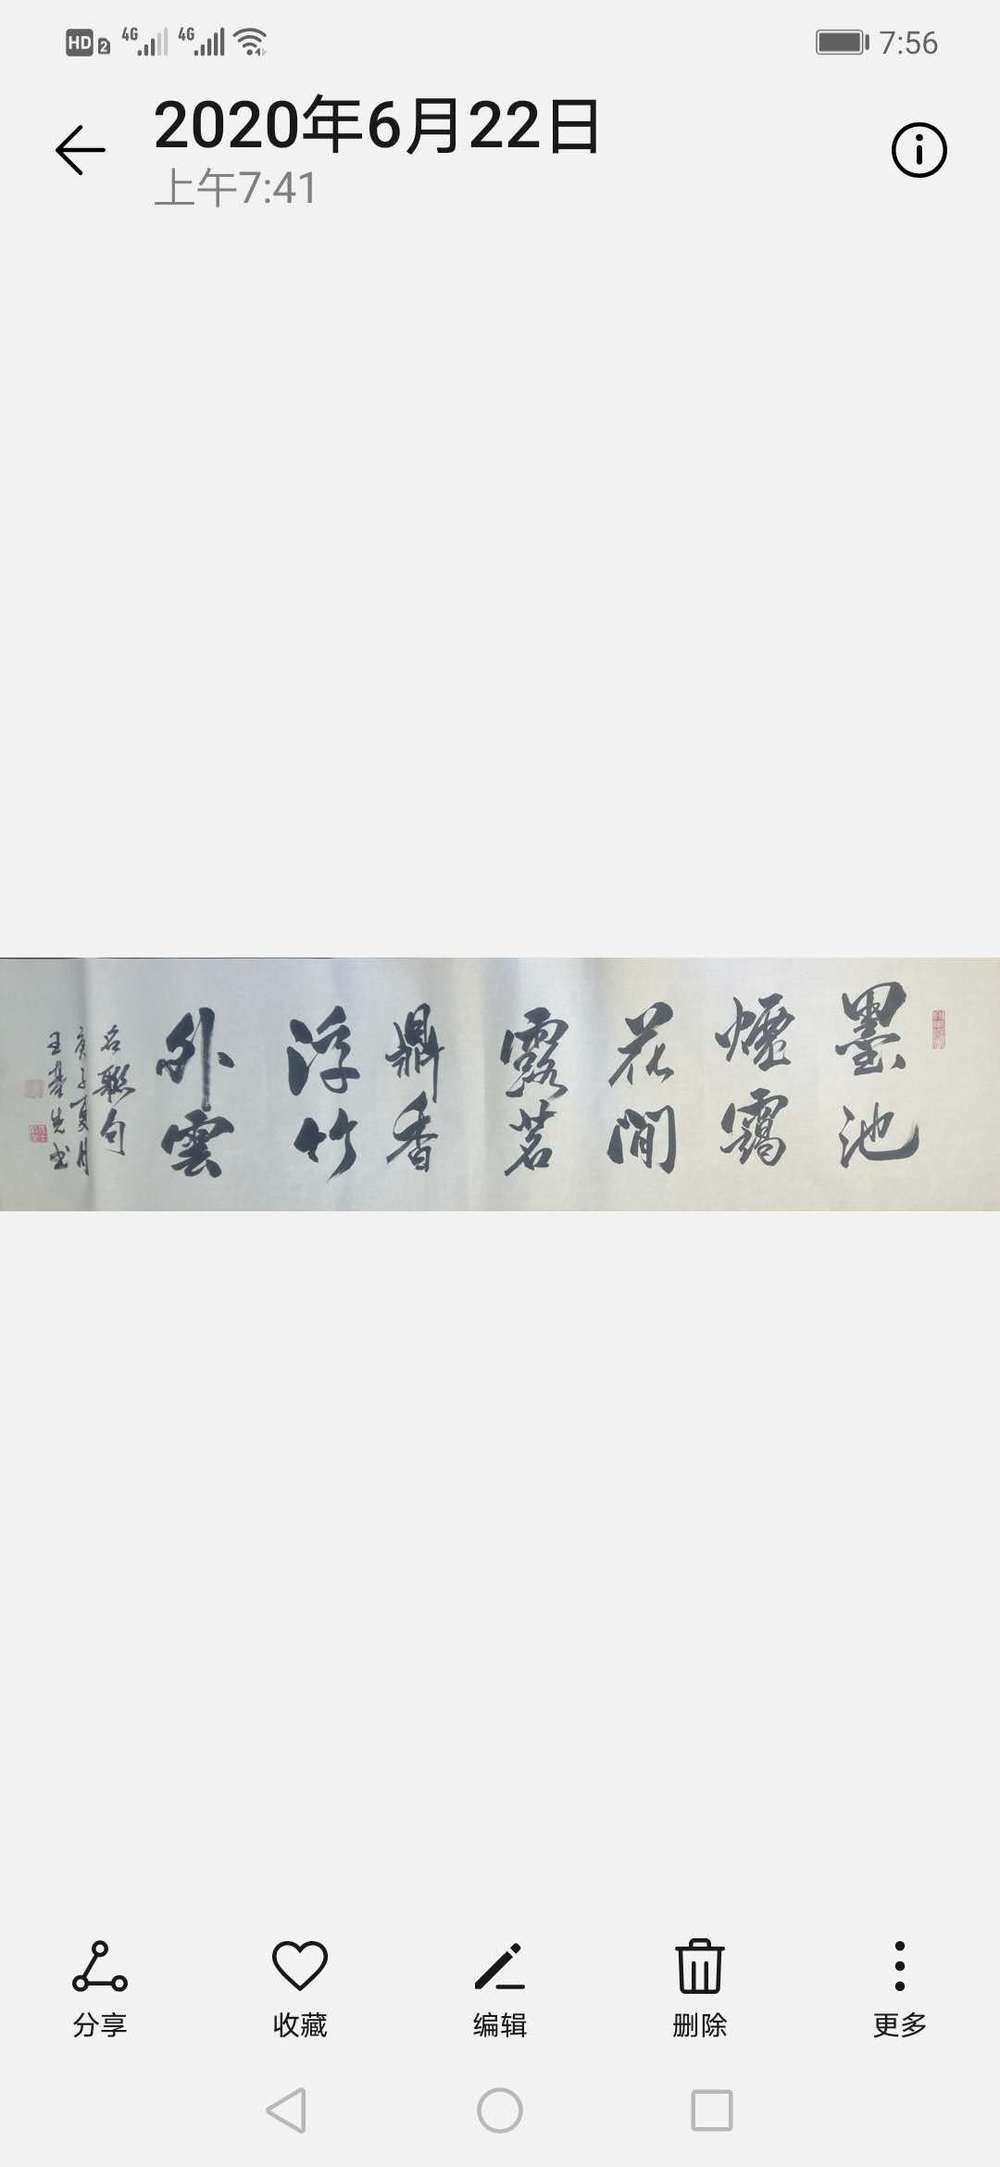 HD 2 4G 4G 7:56
2020年6月22日
上午7:41
墨池
煙靄
花間
露茗
鼎香
浮竹
外雲
名聯句
庚子夏月
王先书
分享 收藏 编辑 删除 更多